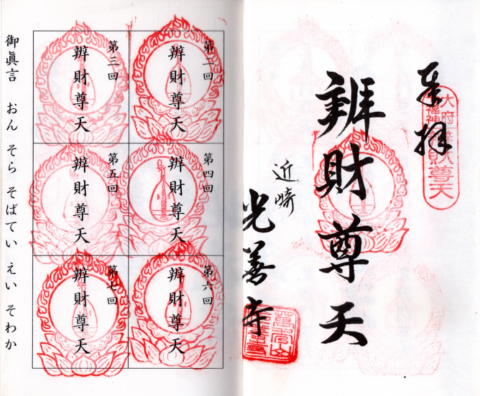 奉拝
辨財尊天
近崎
光善寺
第二回
辨財尊天
第三回
辨財尊天
第四回
辨財尊天
第五回
辨財尊天
第六回
辨財尊天
第七回
辨財尊天
御眞言 おん そら そばてい えい そわか